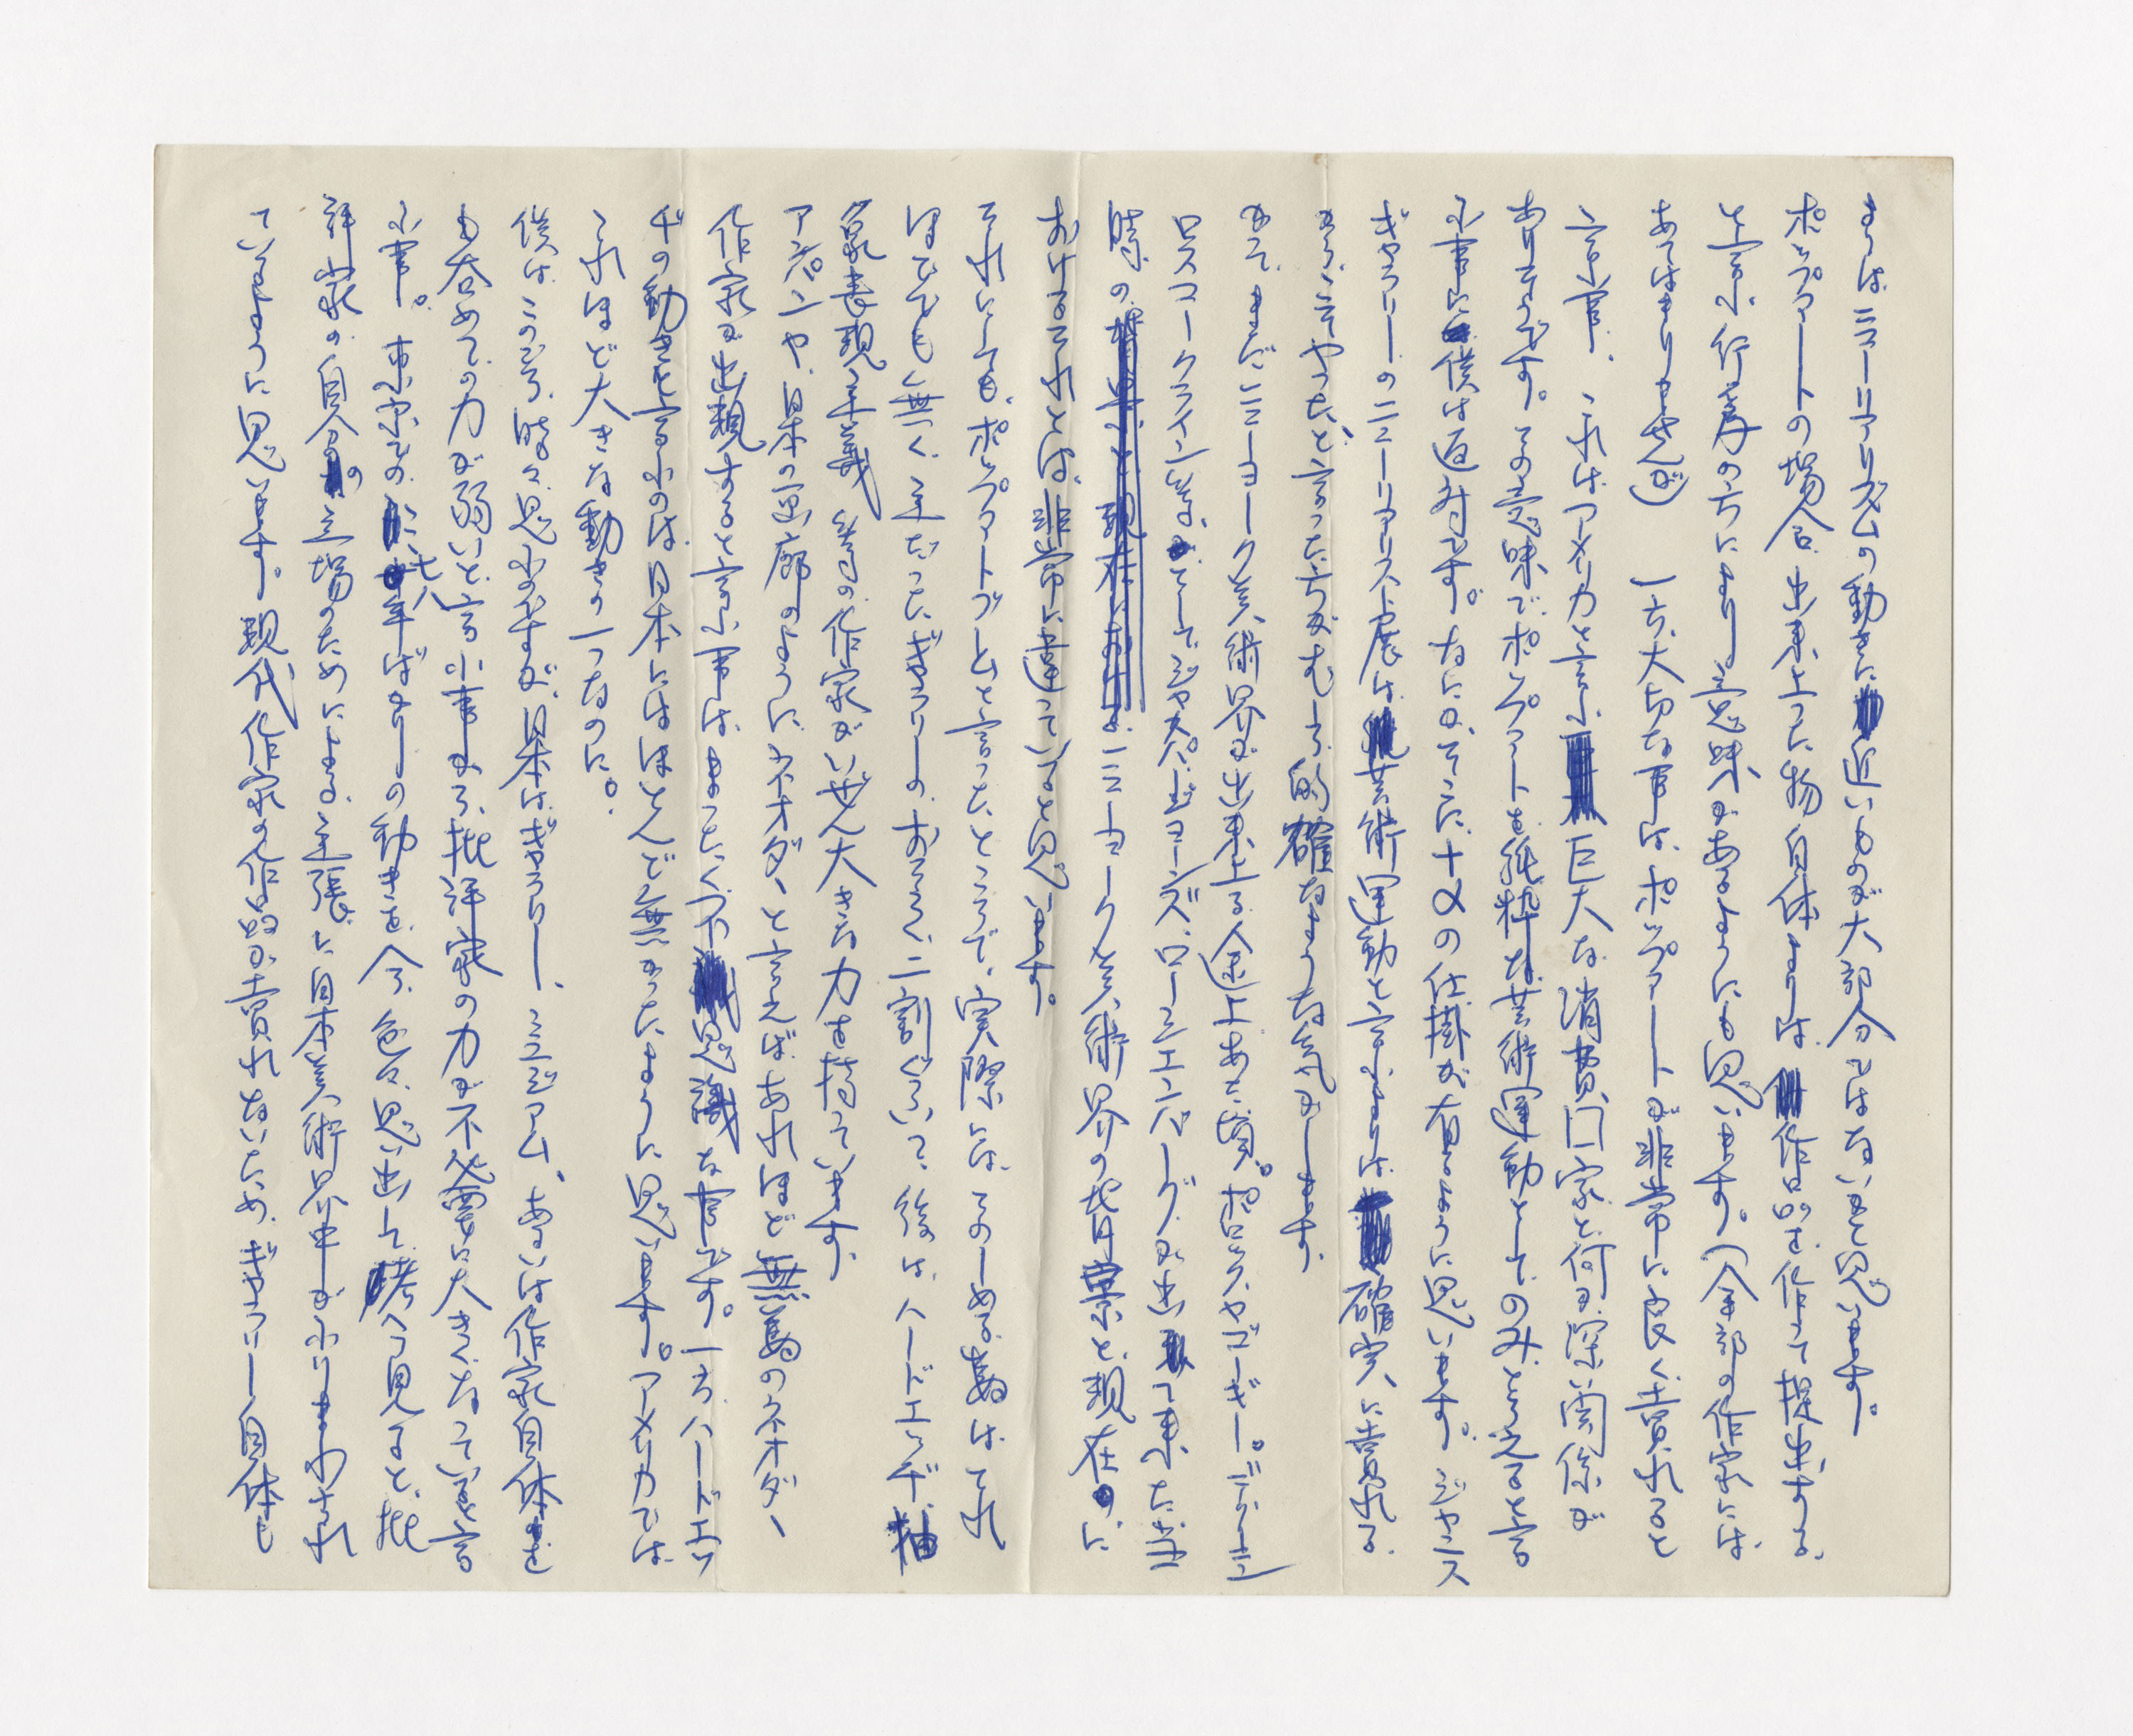 むしろミニマリズムの動きに近いものが大部分ではないかと思います。
ポップアートの場合、出来上った物自体よりは作品を作って提出する
と言う行為の方により意味があるように思います。(全部の作家には
あてはまりませんが) 一方大切な事はポップアートが非常に良く売れると
言う事、これはアメリカと言う巨大な消費国家と何か深い関係が
ありそうです。その意味でポップアートを純粋な芸術運動としてのみとらえると言
う事に僕は反対です。なにかそこに+αの仕掛が有るように思います。ジャニス
ギャラリーのニューリアリスト展は芸術運動と言うよりは確実に売れる
からそこでやった、と言った方がむしろ的確なような気がします。
かつて、まだニューヨーク美術界が出来上る途上あった頃。ポロックやゴーキー。デクーニン
ロスコークライン等。そしてジャスパージョーンズ、ローシェンバーグが出て来た時
際のニューヨーク美術界の背景と、現在のに
おけるそれとは非常に違っていると思います。
それにしても、ポップアートブームと言ったところで、実際には、その占める率はそれ
ほどでも無く、まわったギャラリーのおそらく二割ぐらいで、後は、ハードエッヂ、抽
象表現主義 等々の作家がいぜん大きな力を持っています。
アメリカや、日本の画廊のようにネオダダと言えばあれほど無数のネオダダ
作家が出現すると言う事はまったく不思議な事です。一方ハードエッ
ヂの動きと言うのは日本にはほとんど無かったように思います。アメリカでは
これほど大きな動きの一つなのに。
僕はこのごろ時々思うのですが、日本はギャラリー、ミュージアム、あるいは作家自体を
も含めての力が弱いと言う事から批評家の力が不必要に大きくなっていると言
う事。東京での七八年ばかりの動きを今、色々思い出し考えて見ると、批
評家の自分の立場のためにする主張に日本美術界中がふりまわされ
ているように思います。現代作家の作品が売れないため、ギャラリー自体で